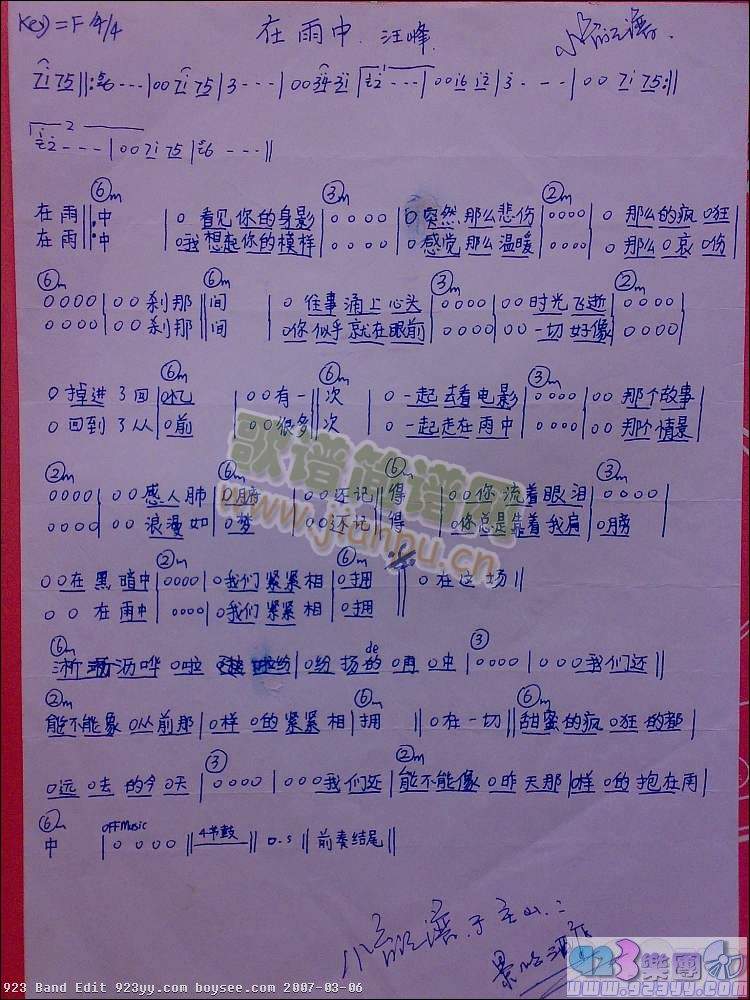 Key=F 4/4 在雨中 汪峰
7i 75 ‖: 6 - - - | 0 0 7i 75 | 3 - - - | 0 0 34 31 | 2 - - - | 0 0 i6 i2 | 3 - - - | 0 0 7i 75 :‖
2 - - - | 0 0 7i 75 | 6 - - - ‖
⑥m ③m ②m
在雨 ‖: 中 | 0 看见你的身影 | 0 0 0 0 | 0 突然那么悲伤 | 0 0 0 0 | 0 那么的疯0狂 |
在雨 中 | 0我想起你的模样 | 0 0 0 0 | 0 感觉那么温暖 | 0 0 0 0 | 0 那么0哀0伤
⑥m ⑥m ③m ②m
0 0 0 0 | 0 0 刹那 ‖ 间 | 0 往事涌上心头 | 0 0 0 0 | 0 0 时光飞逝 | 0 0 0 0 |
0 0 0 0 | 0 0 刹那 ‖ 间 | 0你似乎就在眼前 | 0 0 0 0 | 0 0 一切好像 | 0 0 0 0
⑥m ⑥m ③m
0 掉进了回 | 0忆 | 0 0 有一 ‖ 次 | 0 一起去看电影 | 0 0 0 0 | 0 0 那个故事 |
0 回到了从 | 0前 | 0 0 很多 ‖ 次 | 0 一起走在雨中 | 0 0 0 0 | 0 0 那个情景
②m ⑥m ⑥m ③m
0 0 0 0 | 0 0 感人肺 | 0腑 | 0 0 还记 ‖ 得 | 0 0你流着眼泪 | 0 0 0 0 |
0 0 0 0 | 0 0 浪漫如 | 0梦 | 0 0 还记 ‖ 得 | 0你总是靠着我肩 | 0膀
②m ⑥m
0 0 在黑暗中 | 0 0 0 0 | 0我们紧紧相 | 0拥 ‖ 0 在这场 ‖
0 0 在雨中 | 0 0 0 0 | 0我们紧紧相 | 0拥
⑥m de ③
淅沥哗0啦 纷 | 0纷扬的0雨0中 | 0 0 0 0 | 0 0 0我们还 ‖
②m ⑥m ⑥m
能不能象0从前那 | 0样0的紧紧相 | 拥 ‖ 0在一切 ‖ 甜蜜的疯0狂的都 |
③ ②m
0远0去的今0天 | 0 0 0 0 | 0 0 0我们还 | 能不能像0昨天那 | 0样0的抱在雨 |
⑥m OFF Music
中 | 0 0 0 0 ‖ 4节鼓 ‖ D.S ‖ 前奏结尾 ‖
歌谱简谱网
www.jianpu.cn
923 Band Edit 923yy.com boysee.com 2007-03-06
923樂團
www.923yy.com